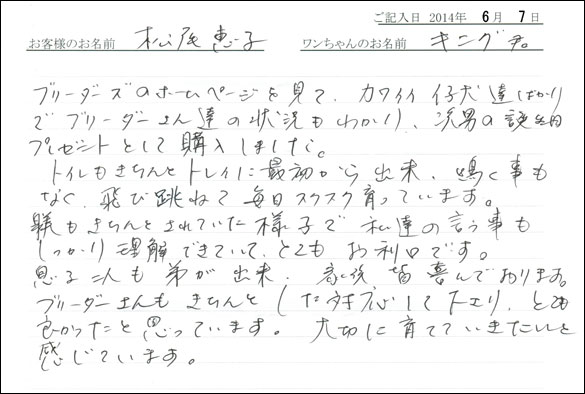 ご記入日 2014年 6月 7日
お客様のお名前 松尾 恵子 ワンちゃんのお名前 キング君
ブリーダーズのホームページを見て、カワイイ仔犬達ばかり
でブリーダーさん達の状況もわかり、次男の誕生日
プレゼントとして購入しました。
トイレもきちんとトレイに最初から出来、鳴く事も
なく、飛び跳ねて毎日スクスク育っています。
躾もきちんとされていた様子で私達の言う事も
しっかり理解できていて、とてもお利口です。
息子二人も弟が出来、家族皆喜んでおります。
ブリーダーさんもきちんとした対応して下さり、とても
良かったと思っています。大切に育てていきたいと
感じています。